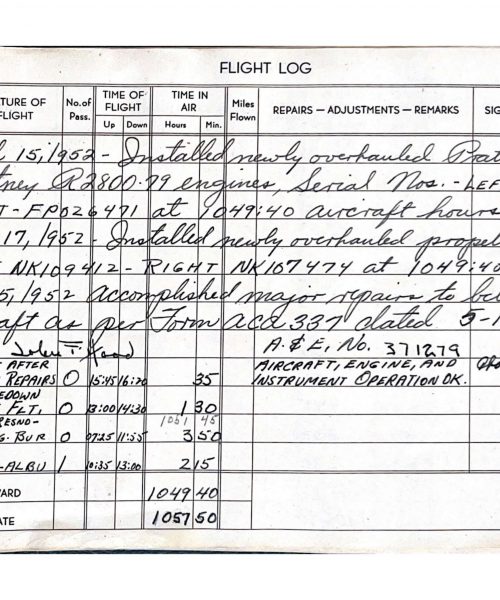 FLIGHT LOG
TURE OF FLIGHT No. of Pass. TIME OF FLIGHT Up Down TIME IN AIR Hours Min. Miles Flown REPAIRS — ADJUSTMENTS — REMARKS SIG
15, 1952 - Installed newly overhauled Prat
tney R2800-79 engines, Serial Nos. - LEF
T - FP026471 at 1049:40 aircraft hours
17, 1952 - Installed newly overhauled propel
NK109412 - RIGHT NK107474 at 1049:40
5, 1952 accomplished major repairs to be
aft as per Form aca 337 dated 5-1
John F. A. & E. No. 371279
AFTER AIRCRAFT, ENGINE, AND
REPAIRS 0 15:45 16:20 35 INSTRUMENT OPERATION OK.
EDOWN
FLT. 0 13:00 14:30 1 30
RESNO- 1051 45
G. BUR 0 0725 11:55 3 50
-ALBU 1 10:35 13:00 2 15
ARD 1049 40
ATE 1057 50